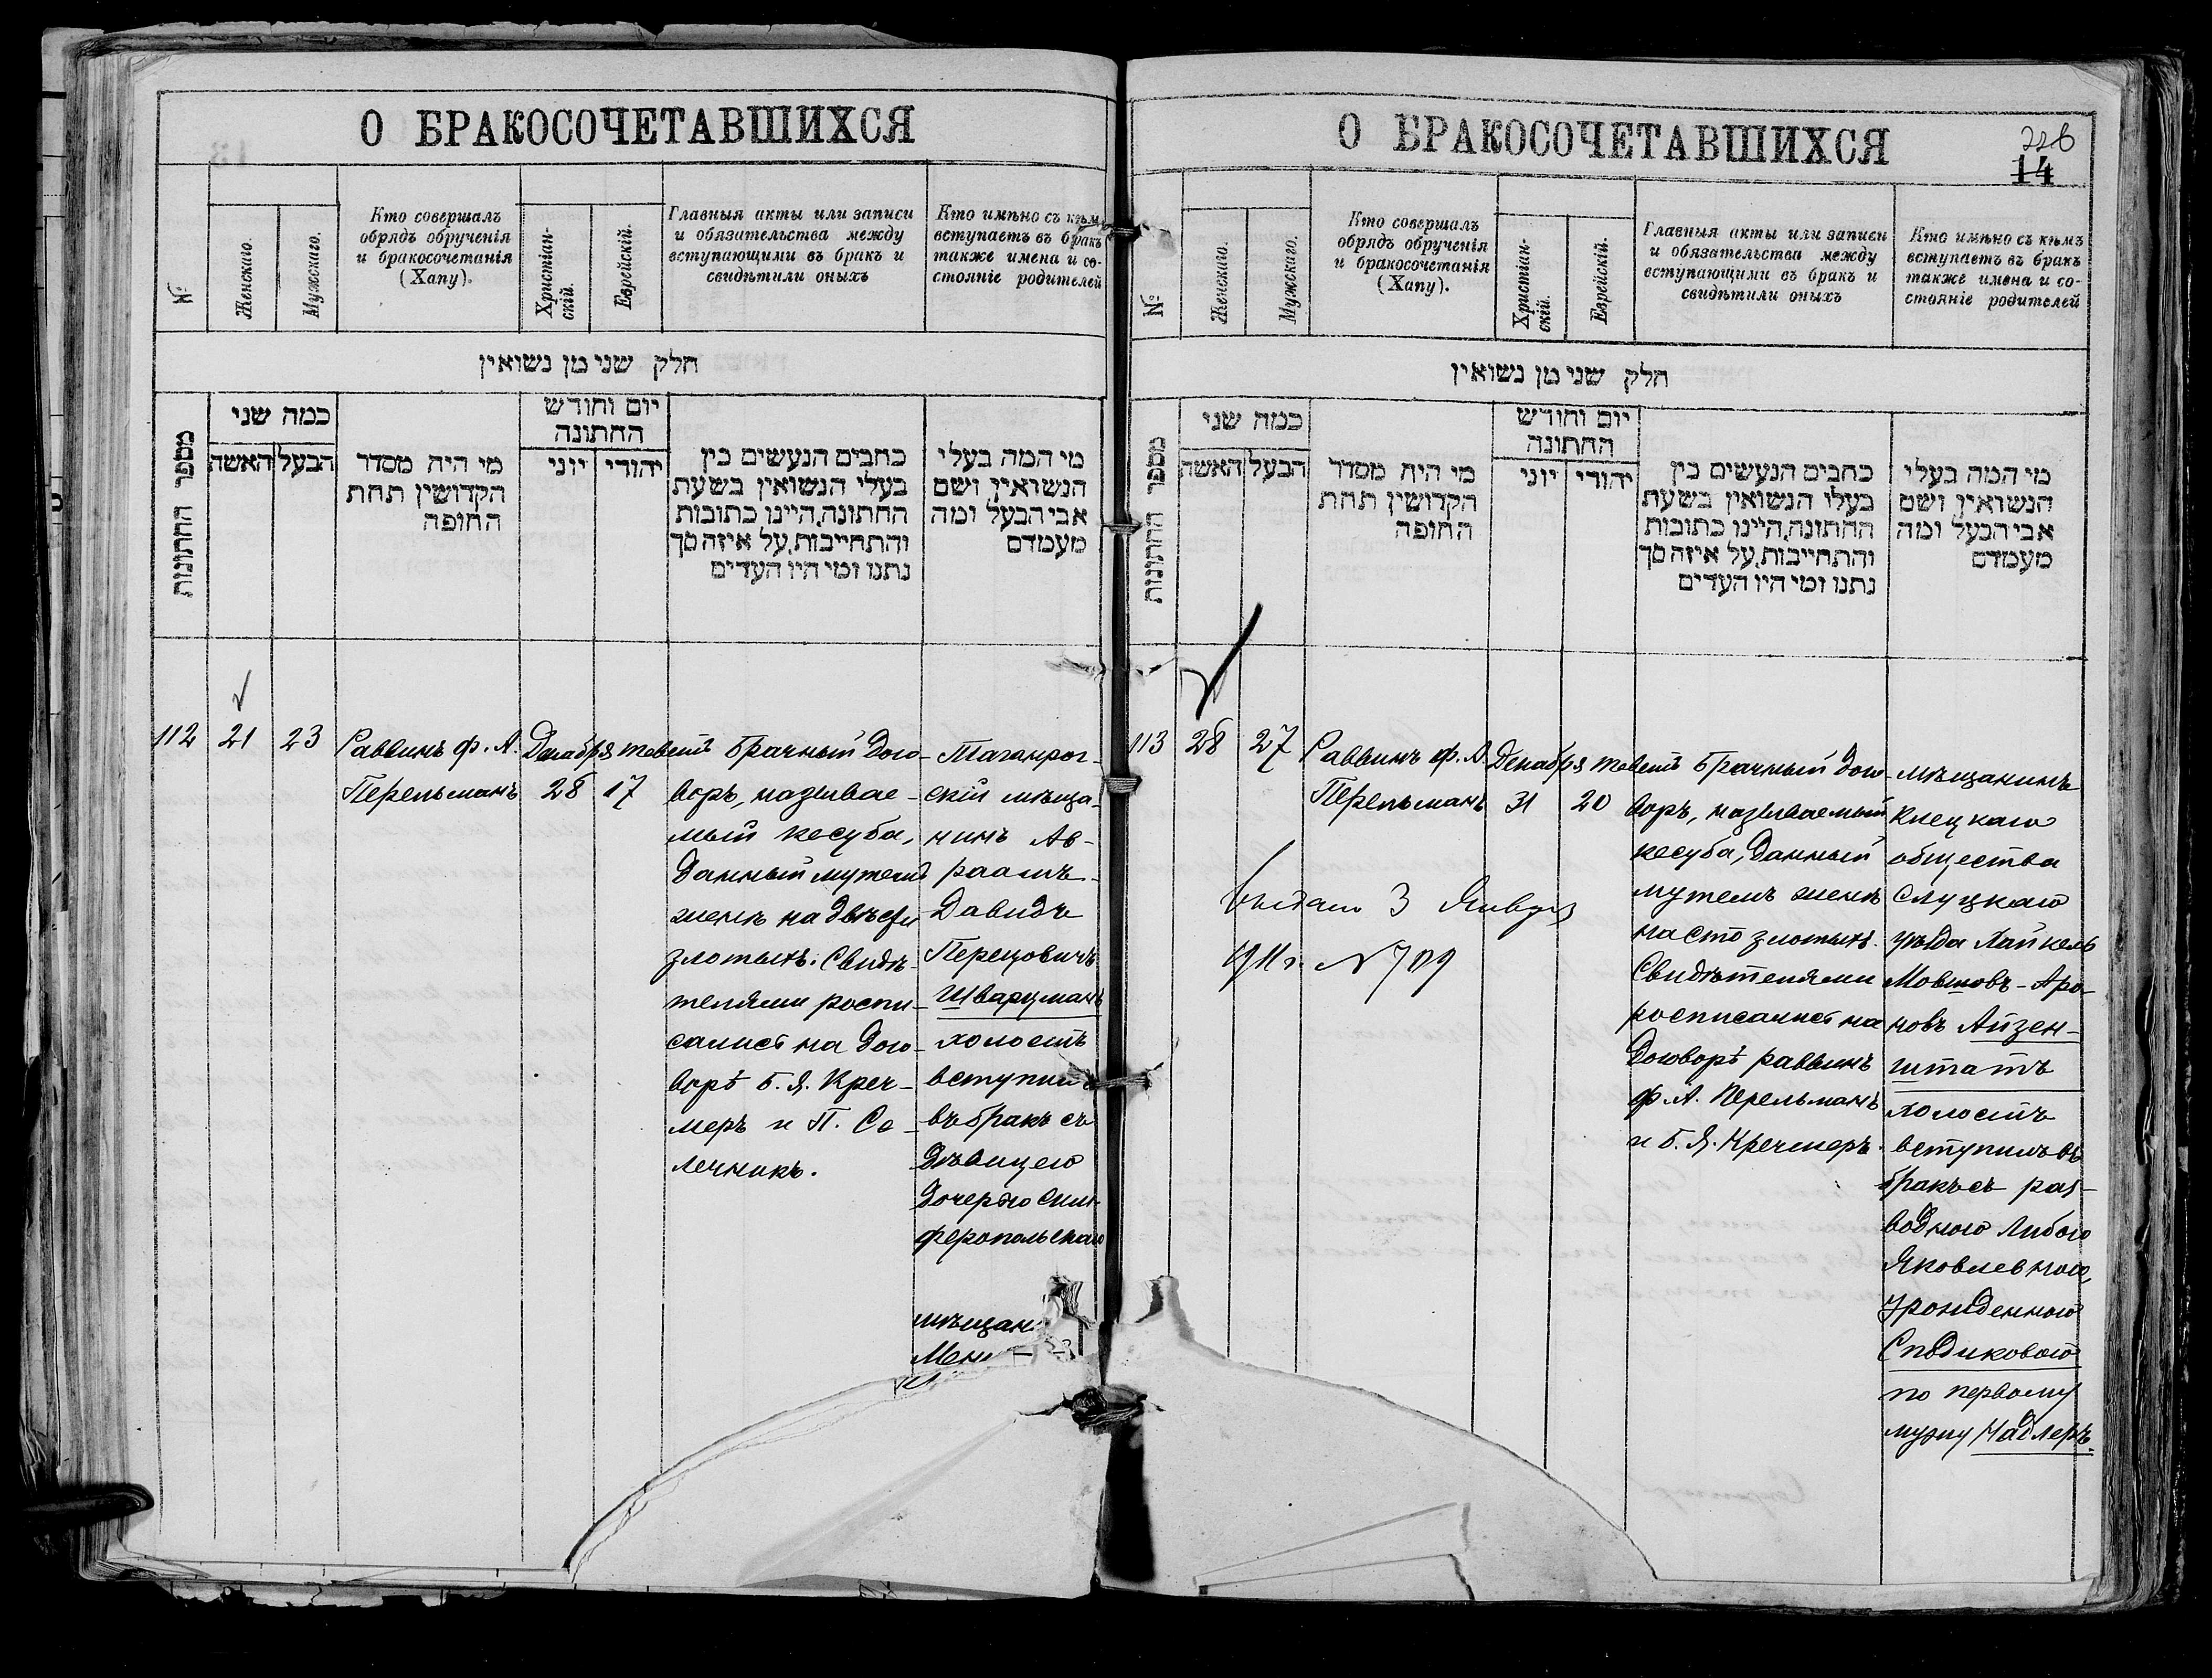 О БРАКОСОЧЕТАВШИХСЯ
№
Женскаго.
Мужскаго.
Кто совершалъ
обрядъ обрученія
и бракосочетанія
(Хапу).
Христіан-
скій.
Еврейскій.
Главныя акты или записи
и обязательства между
вступающими въ бракъ и
свидѣтили оныхъ
Кто имѣно съ кѣмъ
вступаетъ въ бракъ
также имена и со-
стояніе родителей
חלק שני מן נשואין
מספר החתונות
כמה שני
האשה
הבעל
מי היה מסדר
הקדושין תחת
החופה
יום וחודש
החתונה
יוני
יהודי
כתבים הנעשים בין
בעלי הנשואין בשעת
החתונה,היינו כתובות
והתחייבות,על איזה סך
נתנו ומי היו העדים
מי המה בעלי
הנשואין ושם
אבי הבעל ומה
מעמדם
112
21
23
Раввинъ Ф. А.
Перельманъ
Декабря
28
тевет
17
Брачный дого-
воръ, называе-
мый кесуба,
данный мужемъ
женѣ на двѣсти
злотыхъ. Свидѣ-
телями роспи-
сались на дого-
ворѣ Б. Я. Креч-
меръ и П. Со-
лечникъ.
Таганрог-
скій мѣща-
нинъ Ав-
раамъ-
Давидъ
Перецовичъ
Шварцманъ
холостъ
вступилъ
въ бракъ съ
дѣвицею
дочерью Сим-
феропольскаго
мѣщан
Мен
О БРАКОСОЧЕТАВШИХСЯ
226
14
№
Женскаго.
Мужскаго.
Кто совершалъ
обрядъ обрученія
и бракосочетанія
(Хапу).
Христіан-
скій.
Еврейскій.
Главныя акты или записи
и обязательства между
вступающими въ бракъ и
свидѣтили оныхъ
Кто имѣно съ кѣмъ
вступаетъ въ бракъ
также имена и со-
стояніе родителей
חלק שני מן נשואין
מספר החתונות
כמה שני
האשה
הבעל
מי היה מסדר
הקדושין תחת
החופה
יום וחודש
החתונה
יוני
יהודי
כתבים הנעשים בין
בעלי הנשואין בשעת
החתונה,היינו כתובות
והתחייבות,על איזה סך
נתנו ומי היו העדים
מי המה בעלי
הנשואין ושם
אבי הבעל ומה
מעמדם
113
28
27
Раввинъ Ф. А.
Перельманъ
Декабря
31
тевет
20
Брачный дого-
воръ, называемый
кесуба, данный
мужемъ женѣ
на сто злотыхъ.
Свидѣтелями
росписались на
договорѣ раввинъ
Ф. А. Перельманъ
и Б. Я. Кречмеръ.
мѣщанинъ
Клецкаго
общества
Слуцкаго
уѣзда Хайкель
Мовшовъ-Аро-
новъ Айзен-
штатъ
холостъ
вступилъ въ
бракъ съ раз-
водною Либою
Яковлевною,
урожденною
Сподиковою
по первому
мужу Надлеръ.
Выдано 3 Января
1911 г. № 709